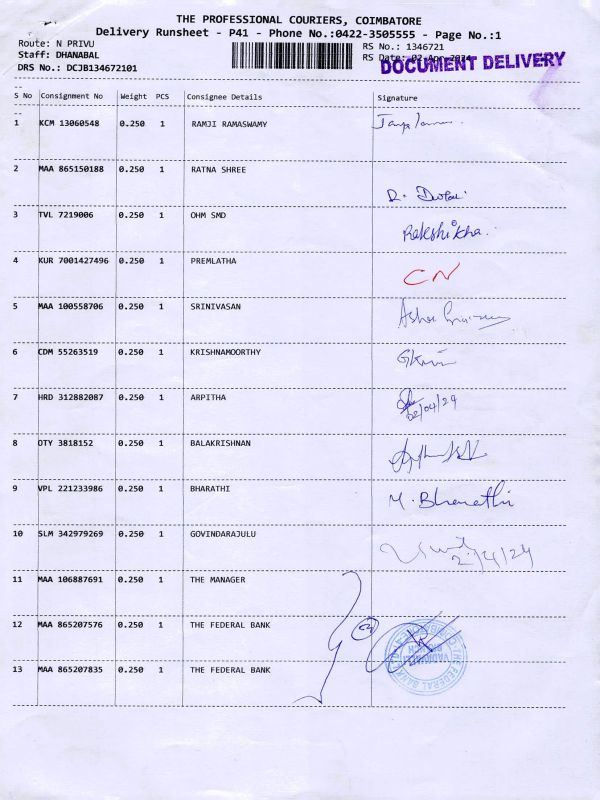 THE PROFESSIONAL COURIERS, COIMBATORE
Delivery Runsheet - P41 - Phone No.:0422-3505555 - Page No.:1
Route: N PRIVU RS No.: 1346721
Staff: DHANABAL RS Date: 02-Apr-2024
DOCUMENT DELIVERY
DRS No.: DCJB134672101
S No Consignment No Weight PCS Consignee Details Signature
1 KCM 13060548 0.250 1 RAMJI RAMASWAMY
2 MAA 865150188 0.250 1 RATNA SHREE
R.
3 TVL 7219006 0.250 1 OHM SMD
Rakshikha
4 KUR 7001427496 0.250 1 PREMLATHA
CN
5 MAA 100558706 0.250 1 SRINIVASAN
6 CDM 55263519 0.250 1 KRISHNAMOORTHY
7 HRD 312882087 0.250 1 ARPITHA
02/04/24
8 OTY 3818152 0.250 1 BALAKRISHNAN
9 VPL 221233986 0.250 1 BHARATHI M. Bharathi
10 SLM 342979269 0.250 1 GOVINDARAJULU
2/4/24
11 MAA 106887691 0.250 1 THE MANAGER
12 MAA 865207576 0.250 1 THE FEDERAL BANK
13 MAA 865207835 0.250 1 THE FEDERAL BANK
THE FEDERAL BANK